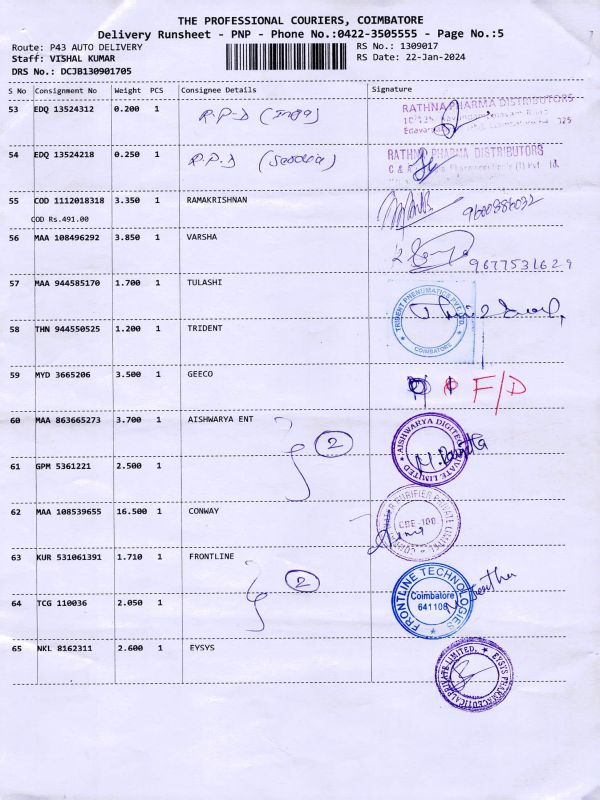 THE PROFESSIONAL COURIERS, COIMBATORE
Delivery Runsheet - PNP - Phone No.:0422-3505555 - Page No.:5
Route: P43 AUTO DELIVERY
RS No.: 1309017
Staff: VISHAL KUMAR
RS Date: 22-Jan-2024
DRS No.: DCJB130901705
S No Consignment No Weight PCS Consignee Details Signature
53 EDQ 13524312 0.200 1 R.P.D
RATHNA PHARMA DISTRIBUTORS
54 EDQ 13524218 0.250 1 R.P.D
RATHNA PHARMA DISTRIBUTORS
55 COD 1112018318 3.350 1 RAMAKRISHNAN
COD Rs.491.00
56 MAA 108496292 3.850 1 VARSHA 9677531629
57 MAA 944585170 1.700 1 TULASHI
TRIDENT PNEUMATICS PVT LTD
COIMBATORE
58 THN 944550525 1.200 1 TRIDENT
59 MYD 3665206 3.500 1 GEECO F/D
60 MAA 863665273 3.700 1 AISHWARYA ENT 2
AISHWARYA DIGITEC PRIVATE LIMITED
61 GPM 5361221 2.500 1
62 MAA 108539655 16.500 1 CONWAY
63 KUR 531061391 1.710 1 FRONTLINE 2
FRONTLINE TECHNOLOGIES
Coimbatore
641108
64 TCG 110036 2.050 1
65 NKL 8162311 2.600 1 EYSYS
EYSYS PHARMACEUTICAL PRIVATE LIMITED